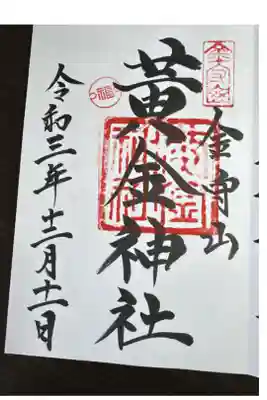 金守山
黄金神社
令和三年十二月十一日